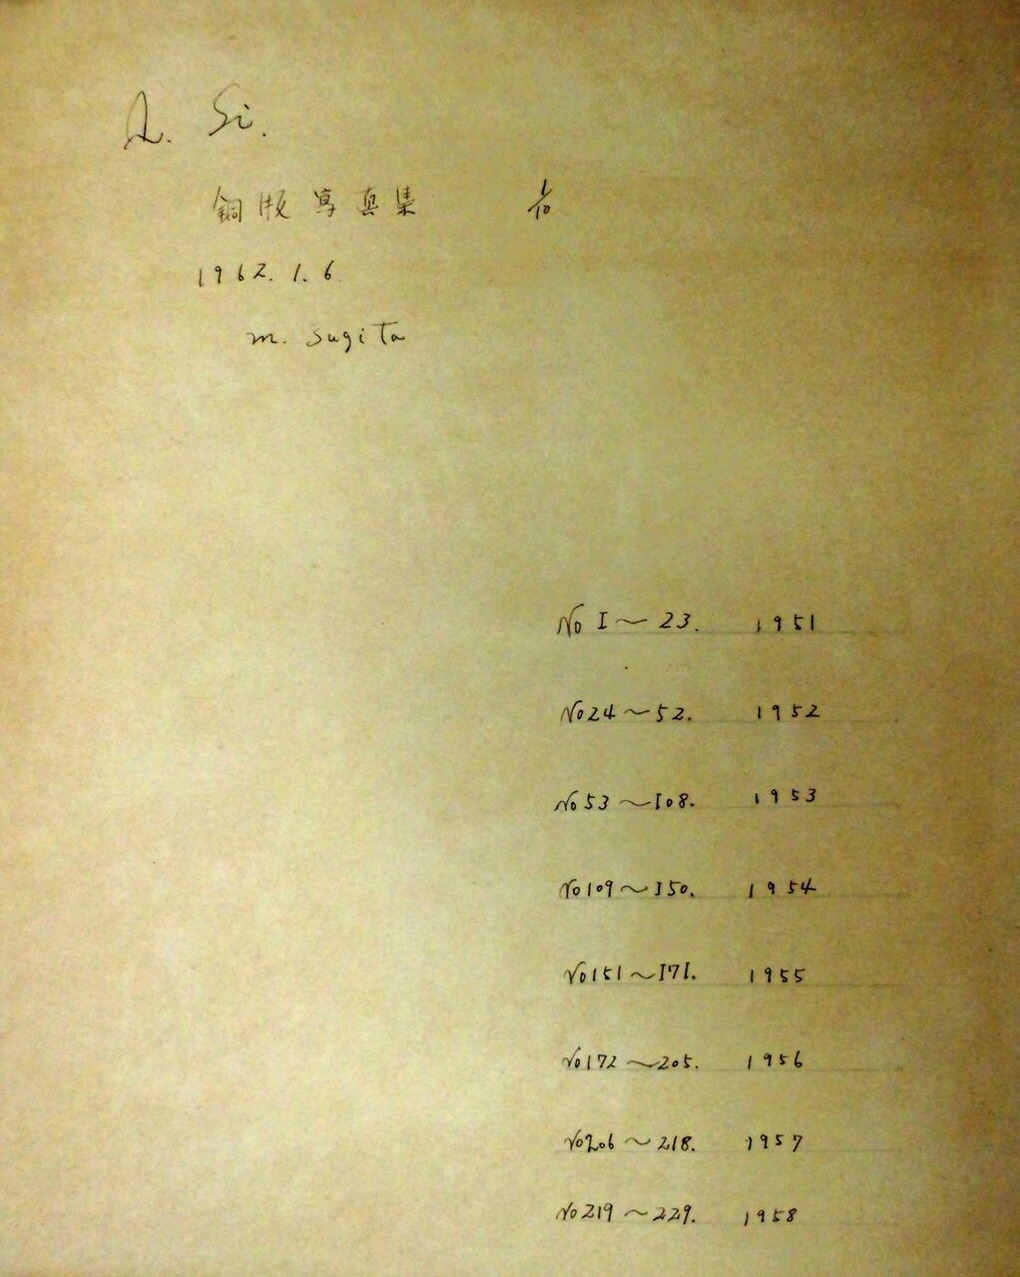 Q. Si.
銅版写真集 1/10
1962.1.6
m. Sugita
No 1～23. 1951
No 24～52. 1952
No 53～108. 1953
No 109～150. 1954
No 151～171. 1955
No 172～205. 1956
No 206～218. 1957
No 219～229. 1958